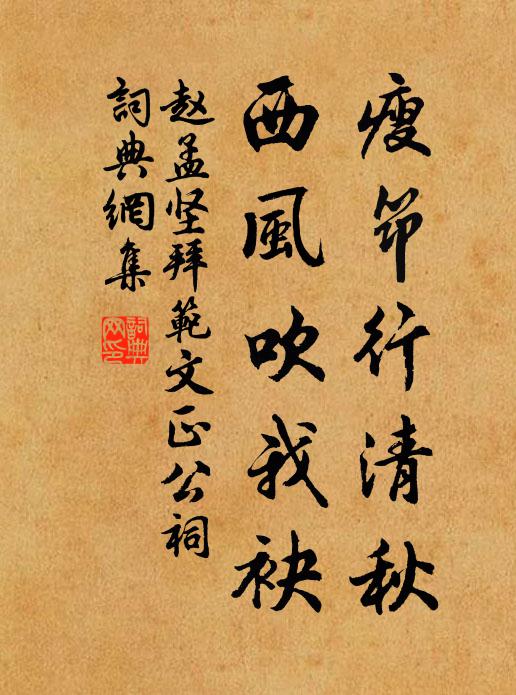 瘦筇行清秋
西風吹我袂
赵孟坚拜範文正公祠
詞典網集
詞典
网印